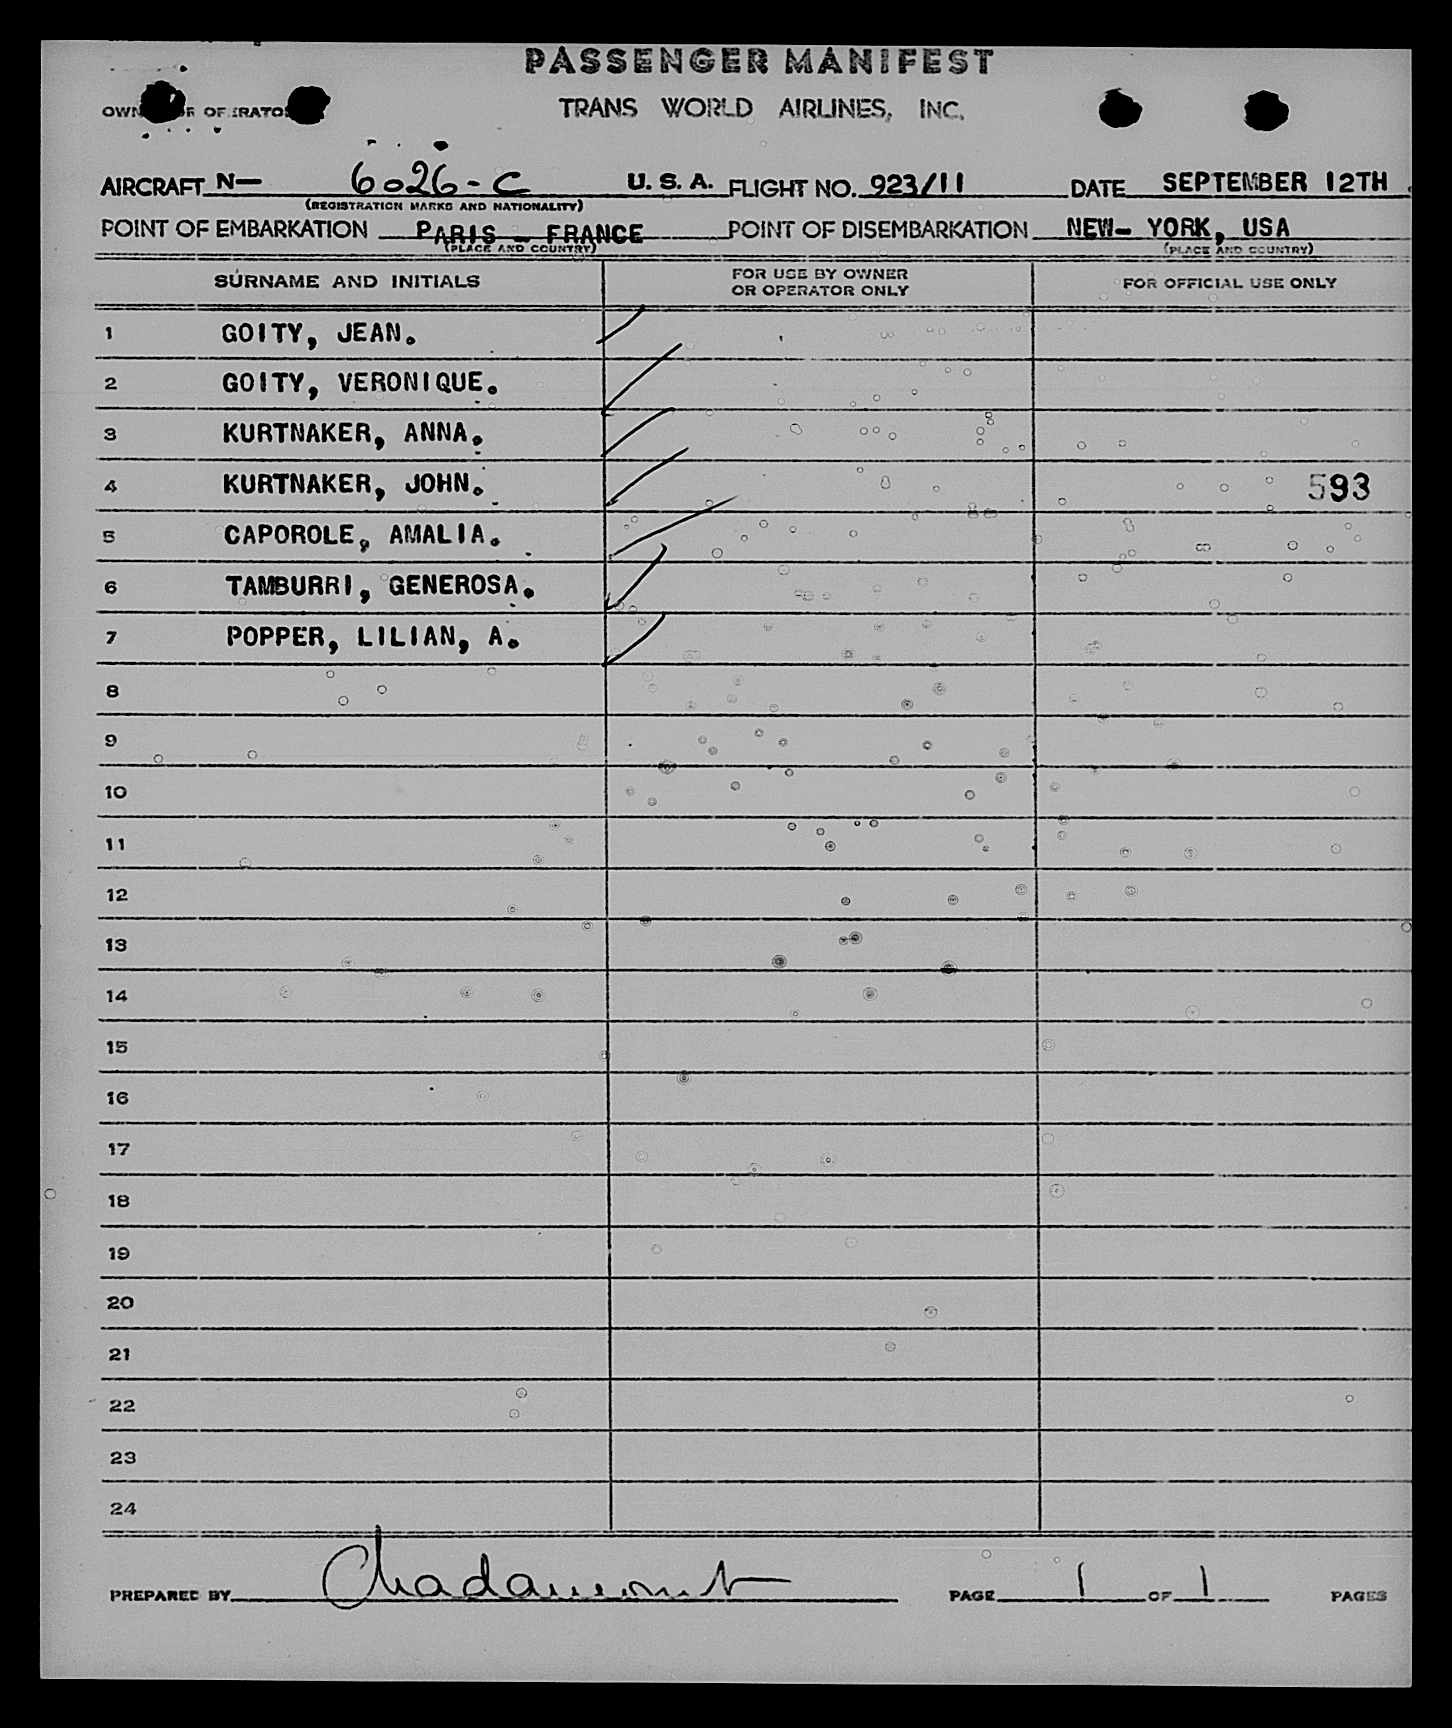 PASSENGER MANIFEST
TRANS WORLD AIRLINES, INC.
AIRCRAFT N— 6026-C U. S. A. FLIGHT NO. 923/11 DATE SEPTEMBER 12TH
(REGISTRATION MARKS AND NATIONALITY)
POINT OF EMBARKATION PARIS - FRANCE POINT OF DISEMBARKATION NEW- YORK, USA
(PLACE AND COUNTRY) (PLACE AND COUNTRY)
SURNAME AND INITIALS FOR USE BY OWNER OR OPERATOR ONLY FOR OFFICIAL USE ONLY
1 GOITY, JEAN.
2 GOITY, VERONIQUE.
3 KURTNAKER, ANNA.
4 KURTNAKER, JOHN. 593
5 CAPOROLE, AMALIA.
6 TAMBURRI, GENEROSA.
7 POPPER, LILIAN, A.
8
9
10
11
12
13
14
15
16
17
18
19
20
21
22
23
24
PREPARED BY PAGE 1 OF 1 PAGES